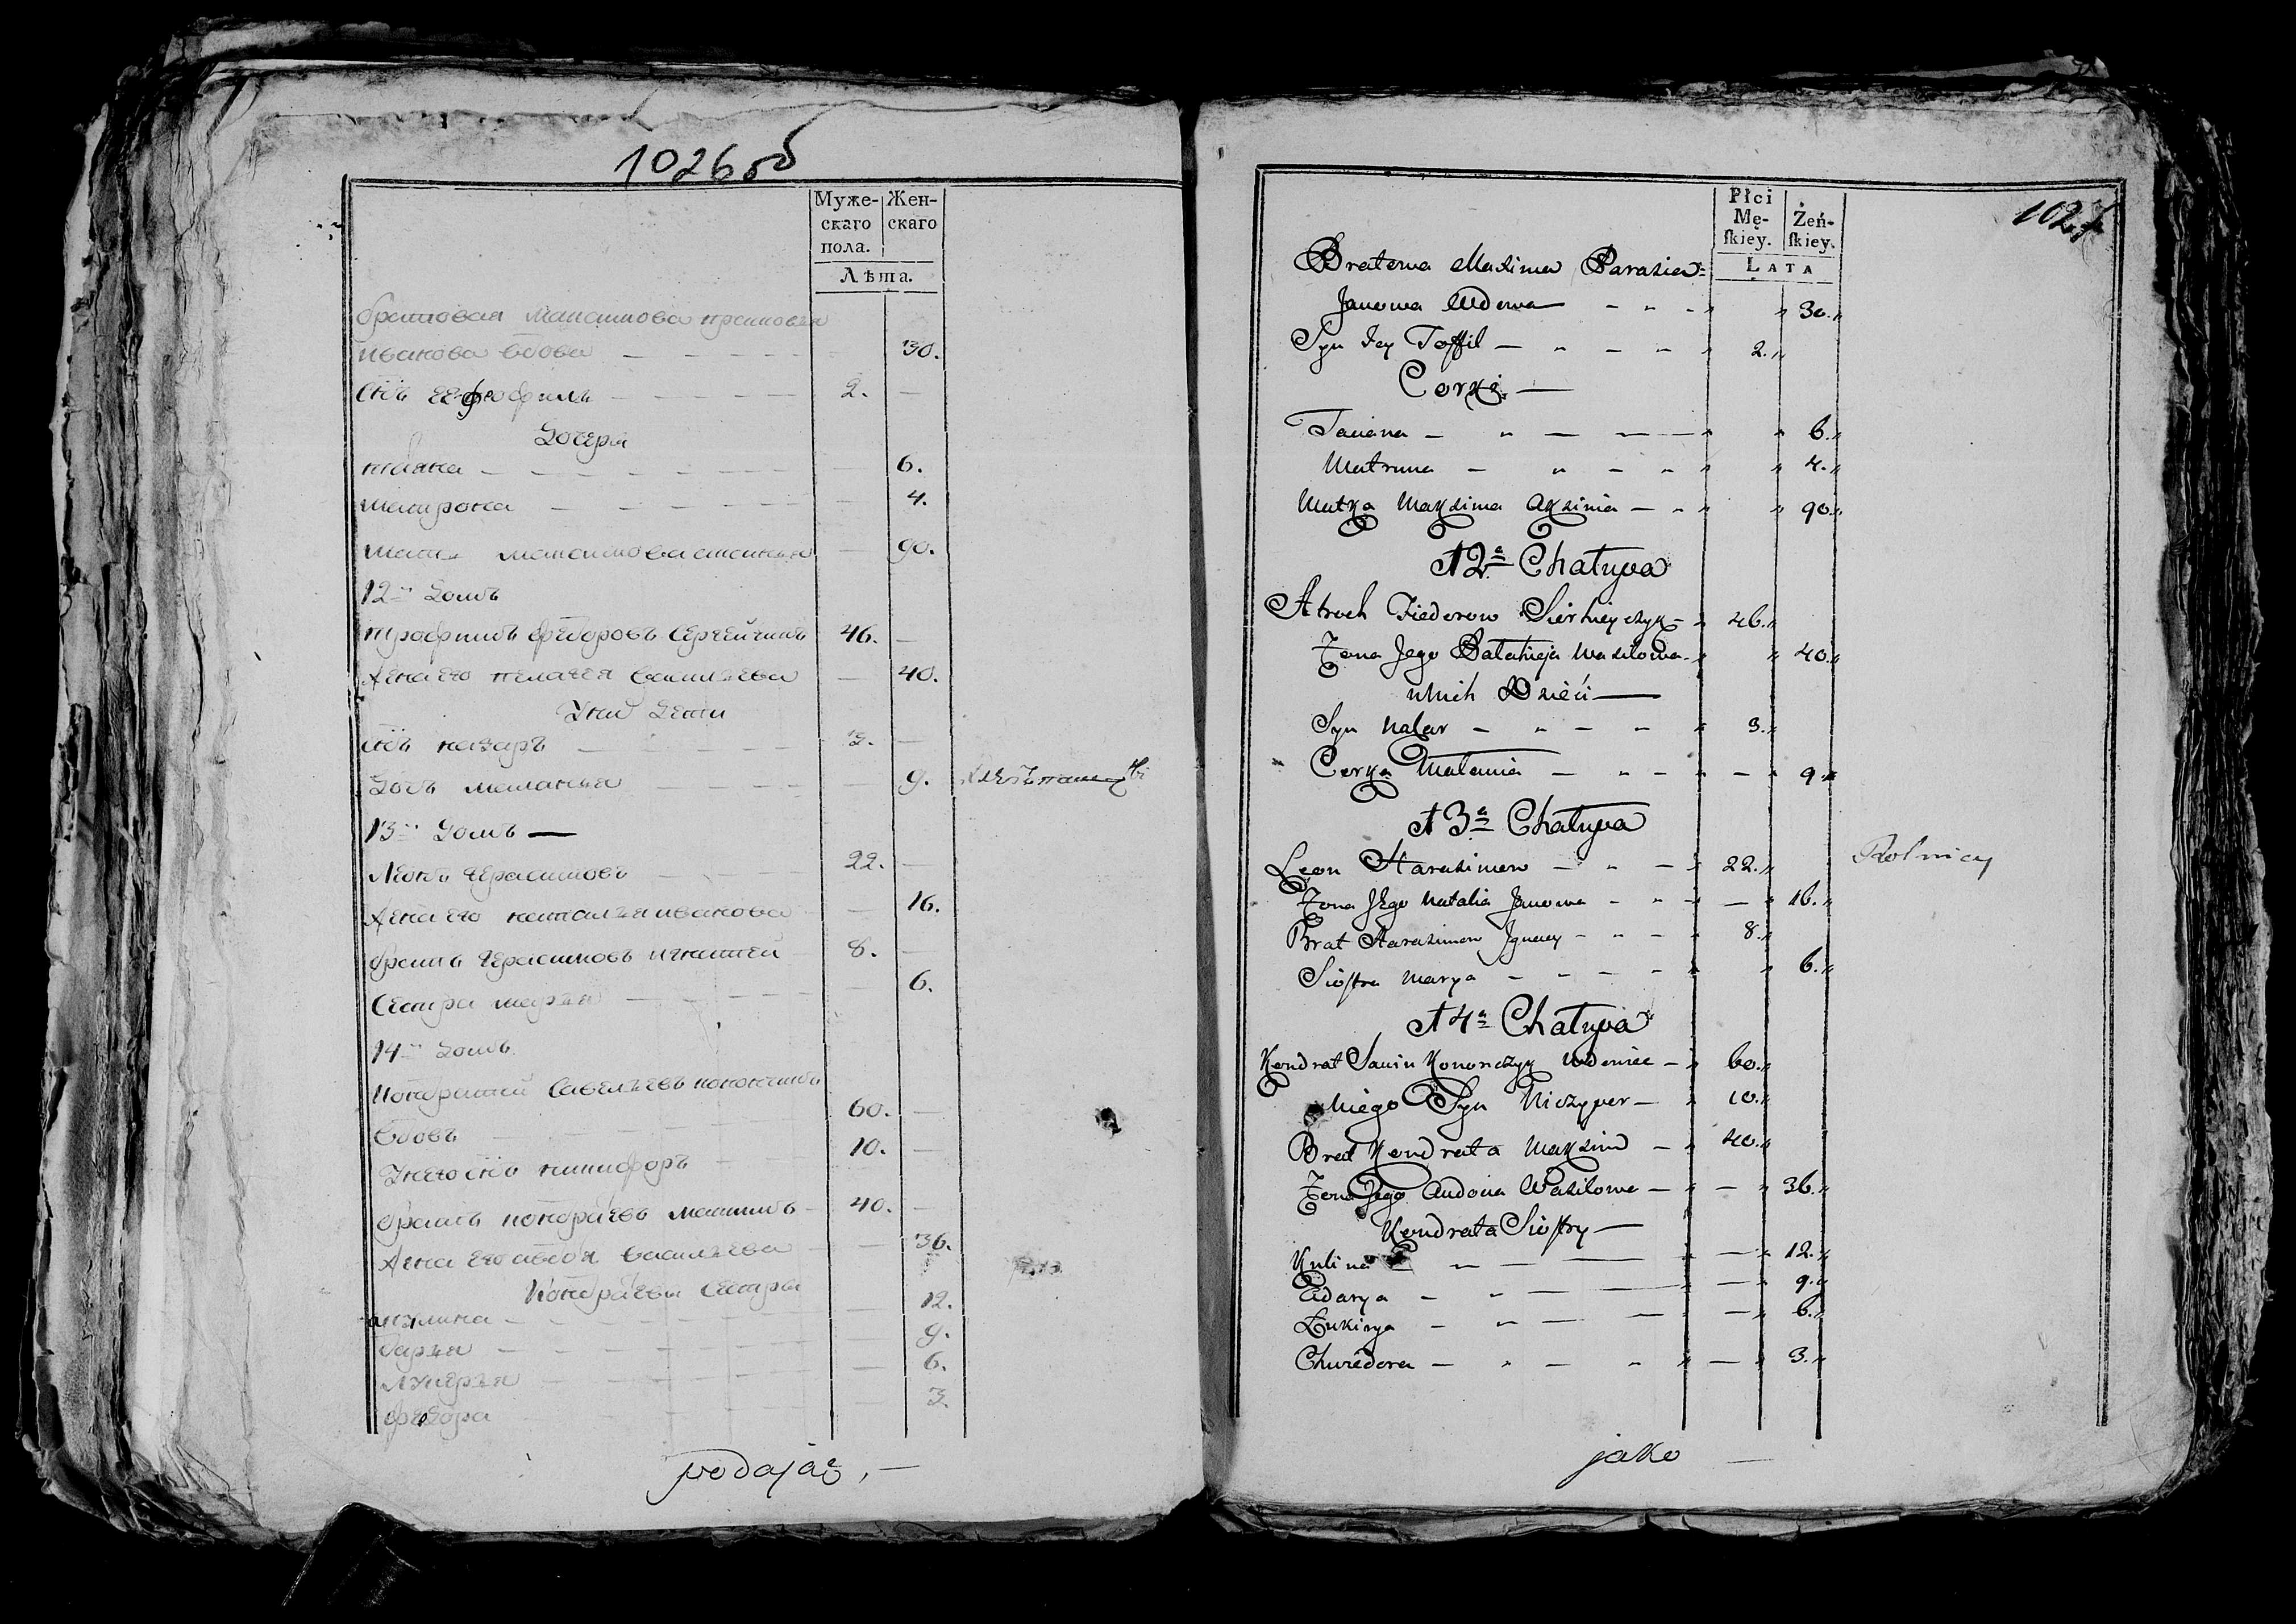 1026 об
Муже-
скаго
пола.
Жен-
скаго
Лѣта.
братовая Максимова прасковья
иванова вдова — — — — — 30.
сн̃ъ её феофилъ — — — — — 2. —
Дочери
татяна — — — — — — 6.
матрона — — — — — 4.
мать максимова аксинья — 90.
12й Домъ
трофимъ федоровъ Сергейчикъ 46. —
Жена его пелагея васильева — 40.
У них Дети
сн̃ъ назаръ — — — — — 3. —
Дочь меланья — — — — — 9.
13й Домъ —
Леонъ герасимовъ — — — 22. —
Жена его наталья иванова — 16.
братъ герасимовъ игнатей 8. —
Сестра марья — — — — 6.
14й Домъ
Кондратей Савельевъ конончикъ
вдовъ — — — — 60. —
У него сн̃ъ никифоръ — 10. —
братъ кондратьевъ максимъ — 40. —
Жена его авдотя васильева — — 36.
Кондратьевы Сестры
акулина — — — — — — 12.
дарья — — — — — — 9.
лукерья — — — — — 6.
федора — — — — 3.
podaiąc, —
1027
Płci
Mę-
ſkiey.
Żeń-
ſkiey.
LATA
Bratowa Maxima Parasia
Janowa Wdowa — „ — „ „ 30. „
Syn Jey Toffil — „ — „ „ 2. „
Corki —
Taciana — „ — — „ „ 6. „
Matruna — „ — „ „ „ 4. „
Matka Maksima Aksinia — „ „ „ 90. „
12a Chałupa
Atroch Fiedorow Sierhieyczyk — „ 46. „
Żona Jego Pałahieja Wasilowa „ „ 40. „
u Nich Dzieci —
Syn Nazar — „ — „ — „ 3. „
Corka Małania — „ — „ — „ 9. „
13a Chałupa
Leon Harasimow — „ — „ 22. „
Rolnicy
Żona Jego Natalia Janowa — „ — „ — „ 16. „
Brat Harasimow Jgnacy — „ — „ 8. „
Siostra Marya — — — — „ „ 6. „
14a Chałupa
Kondrat Sawin Kononczyk Wdowiec — „ 60. „
u Niego Syn Niczyper — „ 10. „
Brat Kondrata Maksim — „ 40. „
Żona Jego Audocia Wasilowa — „ — „ 36. „
Kondrata Siostry —
Kulina — „ — — „ — „ 12. „
Adarya — „ — — „ — „ 9. „
Łukirya — „ — — — „ 6. „
Chwiedora — „ — „ „ — „ 3. „
jako —